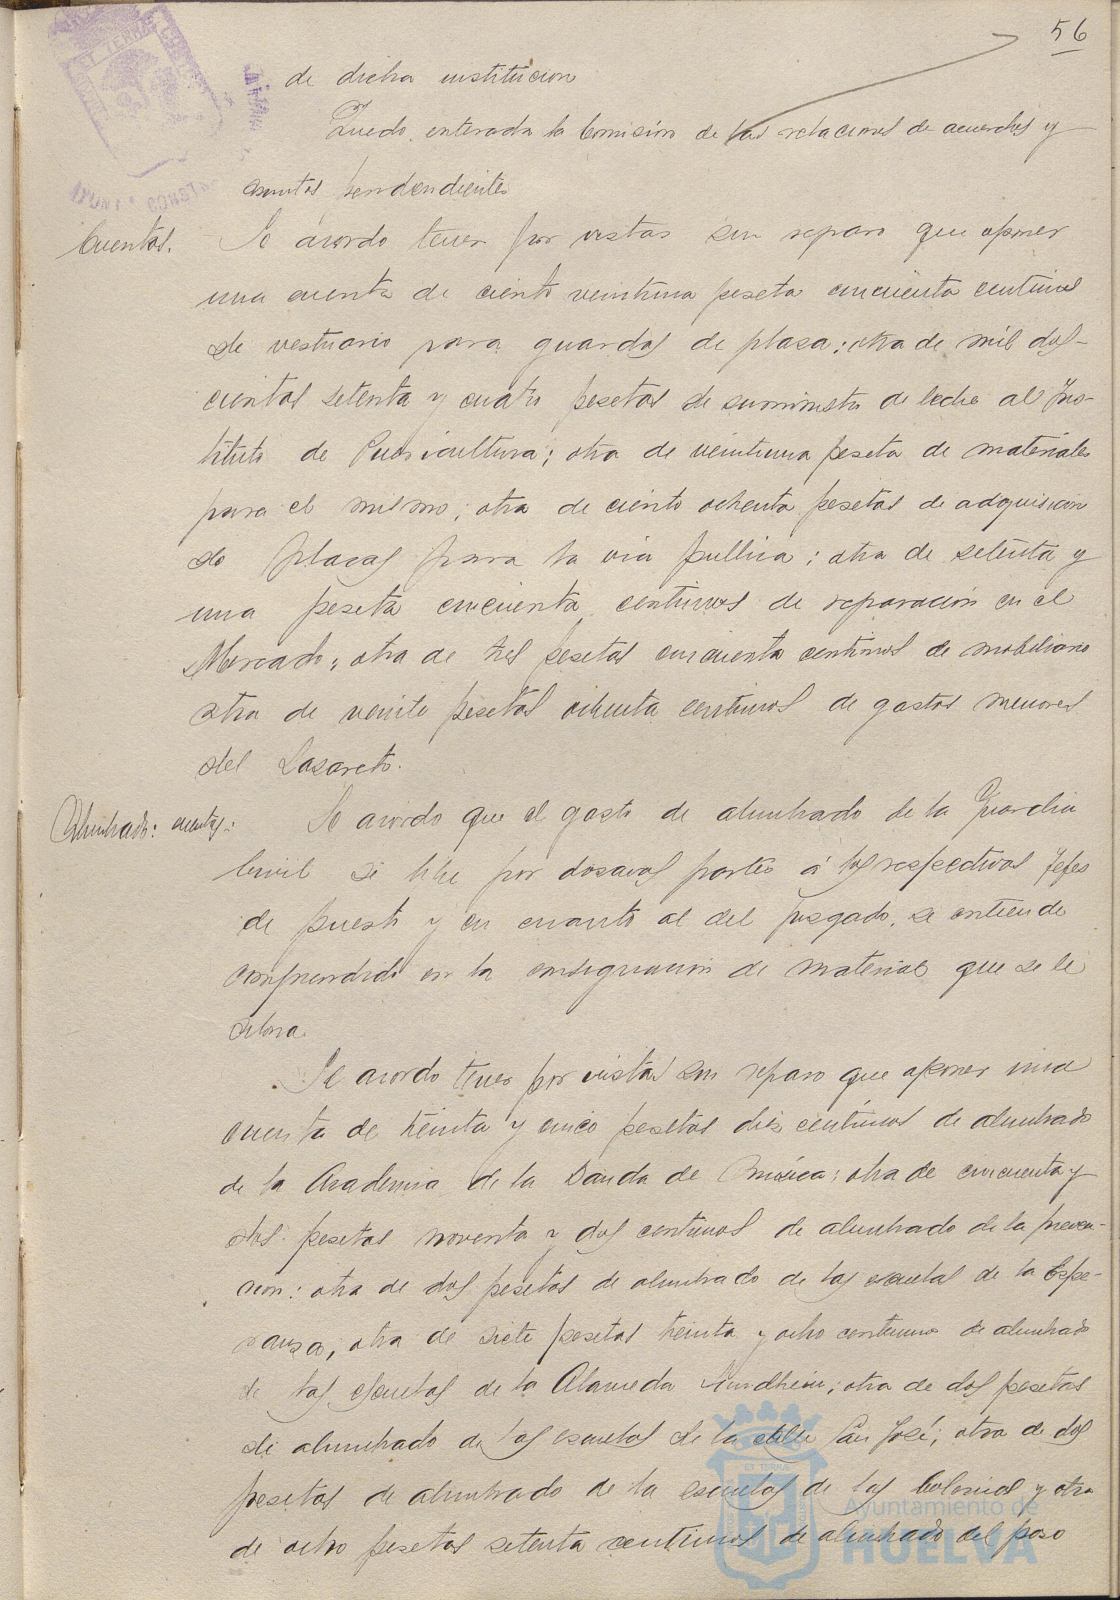 56
de dicha institucion
Quedo enterada la Comisión de las relaciones de acuerdos y
asuntos pendendientes
Cuentas. Se acordo tener por vistas sin reparo que oponer
una cuenta de ciento veintiuna peseta cincuenta centimos
de vestuario para guardas de plaza; otra de mil dos-
cientas setenta y cuatro pesetas de suministro de leche al Ins-
tituto de Puericultura; otra de veintiuna peseta de materiales
para el mismo; otra de ciento ochenta pesetas de adquisicion
de placas para la via publica; otra de setenta y
una peseta cincuenta centimos de reparación en el
Mercado; otra de tres pesetas cincuenta centimos de mobiliario
otra de veinte pesetas ochenta centimos de gastos menores
del Lazareto.
Alumbrado: cuentas: Se acordo que el gasto de alumbrado de la Guardia
Civil se libre por dozavas partes á los respectivos Jefes
de puesto y en cuanto al del juzgado, se entiende
comprendido en la consignacion de material que se le
libra.
Se acordo tener por vistas sin reparo que oponer una
cuenta de treinta y cinco pesetas diez centimos de alumbrado
de la Academia de la Banda de Música; otra de cincuenta y
dos pesetas noventa y dos centimos de alumbrado de la preven-
cion: otra de dos pesetas de alumbrado de las escuelas de la Espe-
ranza; otra de siete pesetas treinta y ocho centimos de alumbrado
de las escuelas de la Alameda Sundheim; otra de dos pesetas
de alumbrado de las escuelas de la calle San José; otra de dos
pesetas de alumbrado de la escuelas de las Colonias y otra
de ocho pesetas setenta centimos de alumbrado del paso
Ayuntamiento de
HUELVA